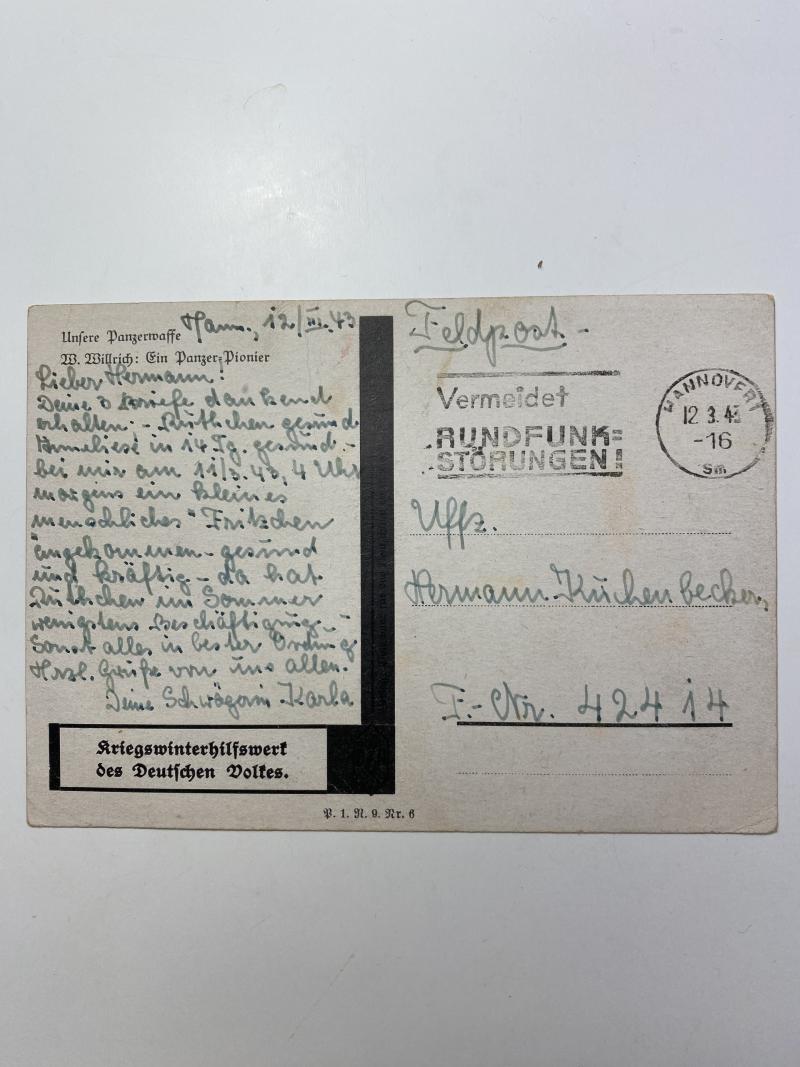 Unsere Panzerwaffe
W. Willrich: Ein Panzer-Pionier
Hann., 12/III. 43
Lieber Hermann!
Deine 3 Briefe dankend
erhalten. - Ruthchen gesund
Anneliese in 14 Tg. gesund. -
bei mir am 11/3.43, 4 Uhr
morgens ein kleines
menschliches "Fritzchen
"angekommen - gesund
und kräftig - da hat
Ruthchen im Sommer
wenigstens Beschäftigung. -
Sonst alles in bester Ordnung
Hrzl. Grüße von uns allen.
Deine Schwägerin Karla
Kriegswinterhilfswerk
des Deutschen Volkes.
P. 1. R. 9. Nr. 6
Feldpost -
Vermeidet
RUNDFUNK=
STÖRUNGEN!
HANNOVER 1
12.3.43
-16
Sm
Uffz.
Hermann Kuchenbecker,
F.-Nr. 42414